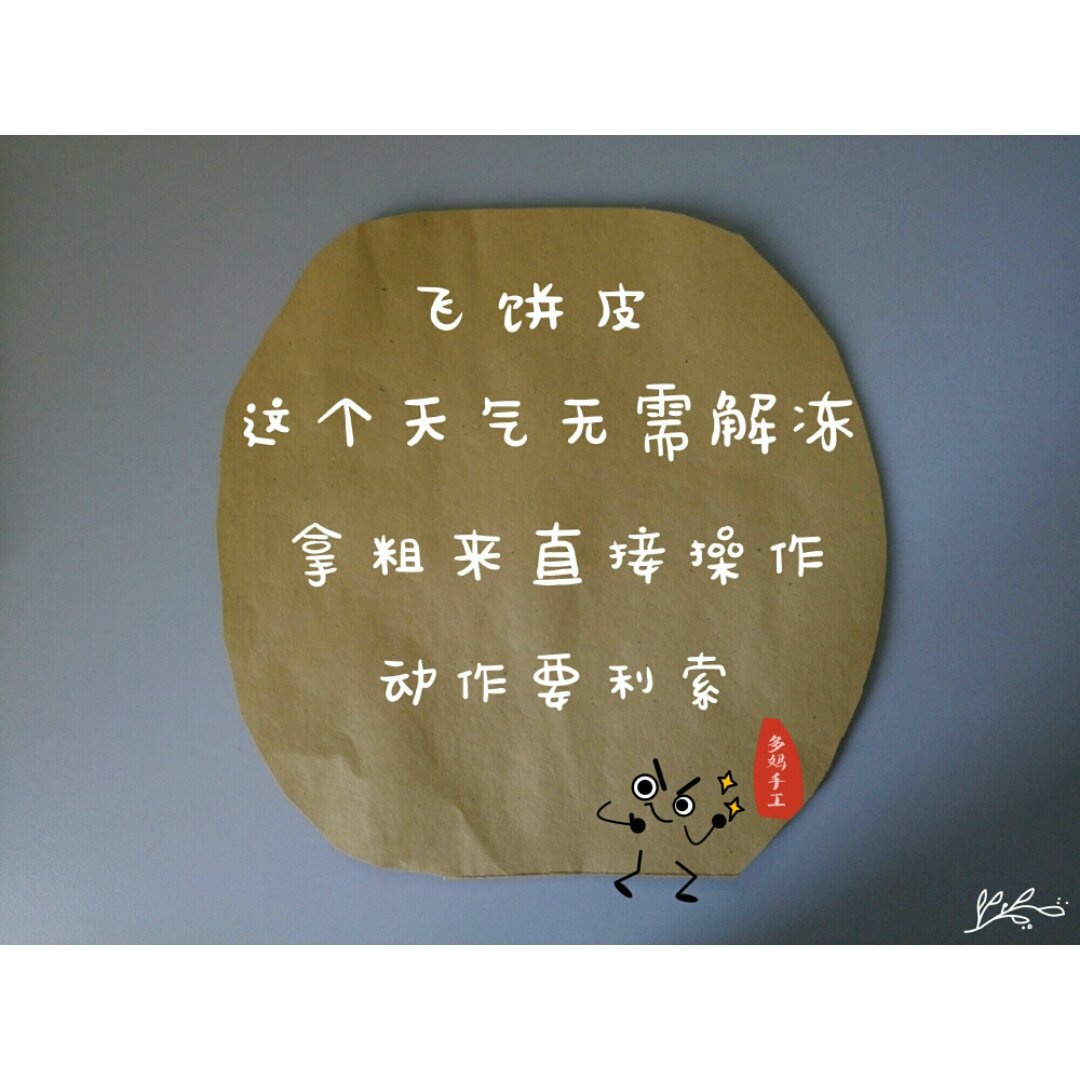 飞饼皮
这个天气无需解冻
拿粗来直接操作
动作要利索
多妈手工